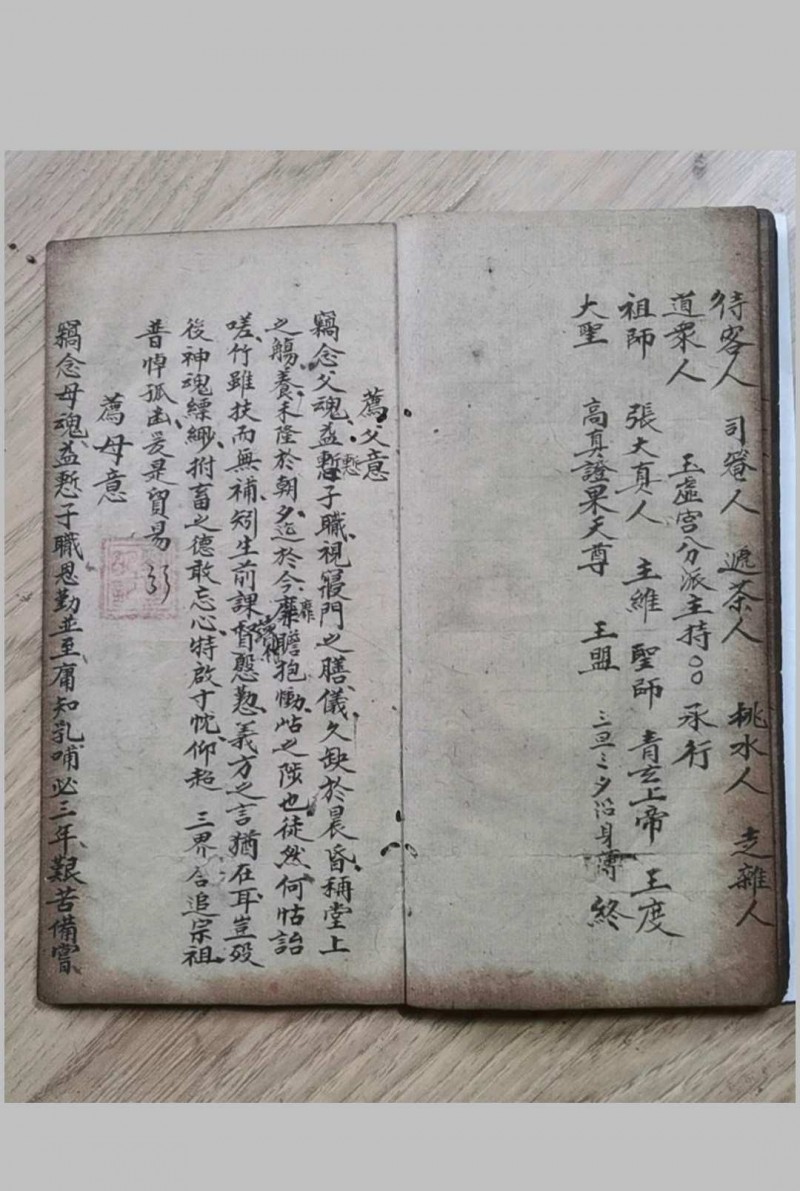 待客人 司厨人 遞茶人 桃水人 走雜人
道衆人 玉虛宮分派主持〇〇承行
祖師 張大真人 主維 聖師 青玄上帝 主度
大聖 高真證果天尊 主盟 三旦三夕沿身薄 終
薦父意
竊念父魂益慙子職視寝門之膳儀久缺於晨昏稱堂上
之觴養未隆於朝夕迄於今靡瞻抱慟岵之陟也徒然何怙詒
嗟竹雖扶而無補矧生前課督慇懃義方之言猶在耳豈殁
後神魂縹緲拊畜之德敢忘心特啟寸忱仰超 三界合追宗祖
普悼孤幽爰是貿易
薦母意
竊念母魂益慙子職恩勤並至庸知乳哺必三年艱苦備嘗